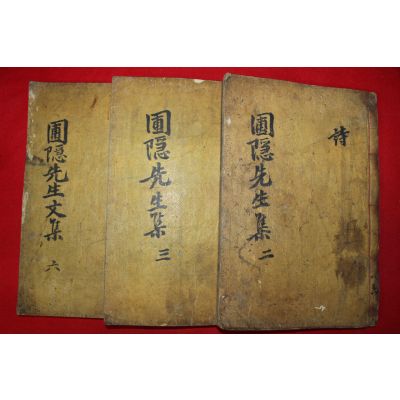 圃隠先生文集 六
圃隠先生集 三
圃隠先生集 二
詩